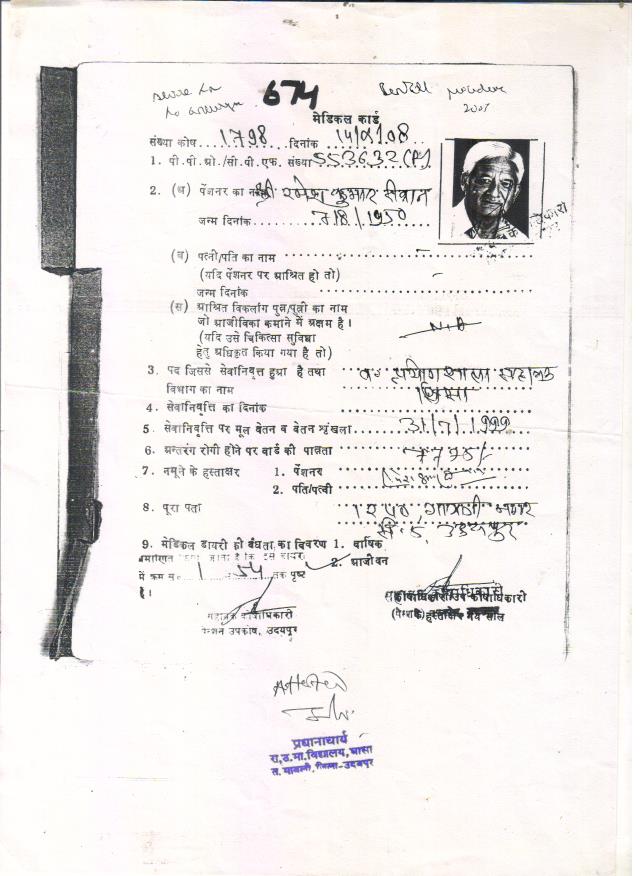 674
2001
मेडिकल कार्ड
संख्या कोष 1798 दिनांक
1. पी.पी.ओ./सी.पी.एफ. संख्या 553632(P)
2. (अ) पेंशनर का नाम श्री रमेश कुमार दीवान
जन्म दिनांक 7/8/1950
(ब) पत्नी/पति का नाम
(यदि पेंशनर पर आश्रित हो तो)
जन्म दिनांक
(स) आश्रित विकलांग पुत्र/पुत्री का नाम
जो आजीविका कमाने में अक्षम है।
(यदि उसे चिकित्सा सुविधा
हेतु अधिकृत किया गया है तो)
3. पद जिससे सेवानिवृत्त हुआ है तथा व. प्रयोगशाला सहायक
विभाग का नाम शिक्षा
4. सेवानिवृत्ति का दिनांक
5. सेवानिवृत्ति पर मूल वेतन व वेतन श्रृंखला 31/7/1999
6. अन्तरंग रोगी होने पर वार्ड की पात्रता 7775/
7. नमूने के हस्ताक्षर 1. पेंशनर
2. पति/पत्नी
8. पूरा पता गायत्री नगर
से. 5, उदयपुर
9. मेडिकल डायरी की वैधता का विवरण 1. वार्षिक
2. आजीवन
में क्रम स. 1 54 तक पृष्ठ
है।
सहायक कोषाधिकारी
पेंशन उपकोष, उदयपुर
कोषाधिकारी/उप कोषाधिकारी
हस्ताक्षर मय सील
Attested
प्रधानाचार्य
रा.उ.मा.विद्यालय, घासा
त. मावली, जिला-उदयपुर